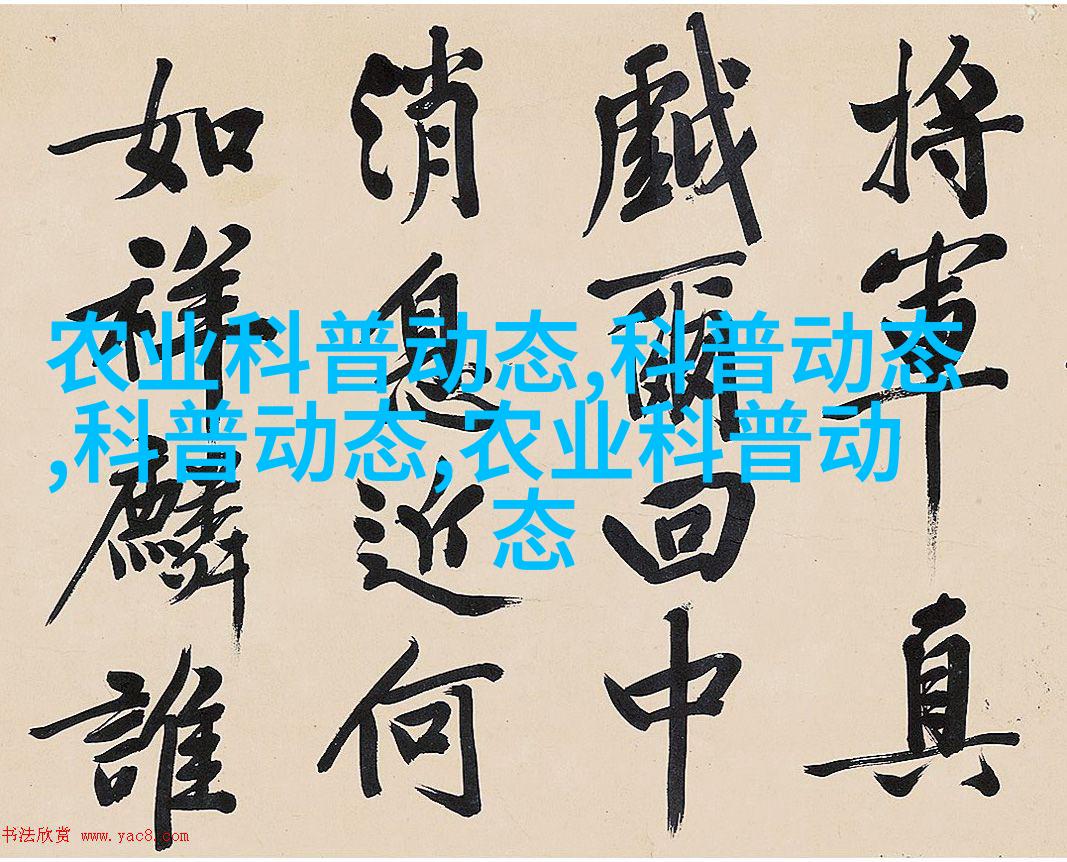 将軍真
戲爾回中
消息近何
如祥麟誰
农业科普动态,科普动态
,科普动态,农业科普动
态
书法欣赏 www.yac8.com